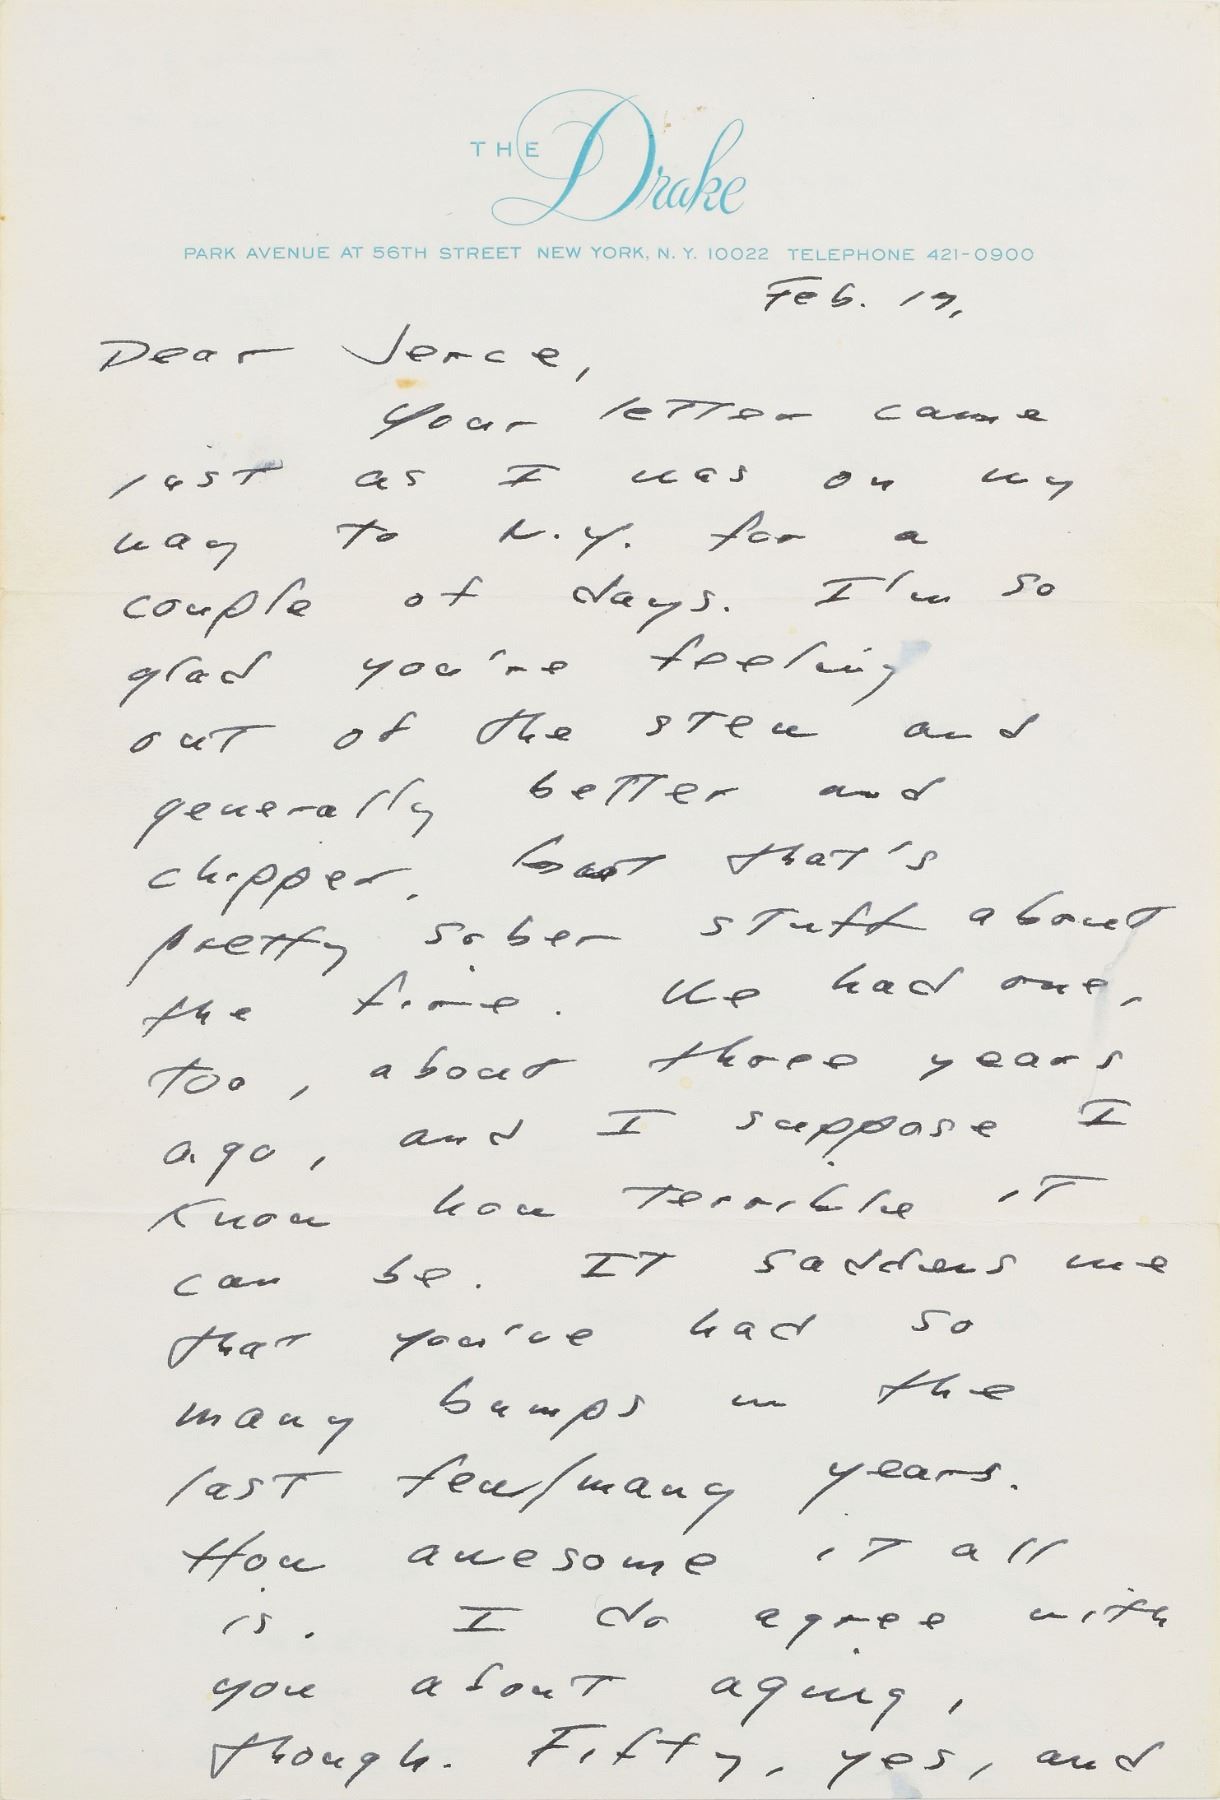 THE Drake
PARK AVENUE AT 56TH STREET NEW YORK, N. Y. 10022 TELEPHONE 421-0900
Feb. 19,
Dear Jerce,
Your letter came
last as I was on my
way to N.Y. for a
couple of days. I'm so
glad you're feeling
out of the stew and
generally better and
chipper, but that's
pretty sober stuff about
the fire. We had one,
too, about three years
ago, and I suppose I
know how terrible it
can be. It saddens me
that you've had so
many bumps in the
last few/many years.
How awesome it all
is. I do agree with
you about aging,
though. Fifty, yes, and